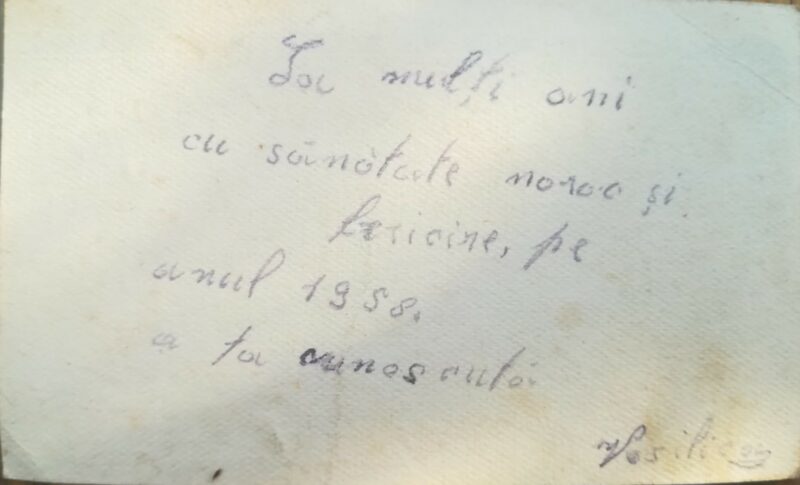 La mulți ani
cu sănătate noroc și
fericire, pe
anul 1958.
a ta cunoscută
Vasilica